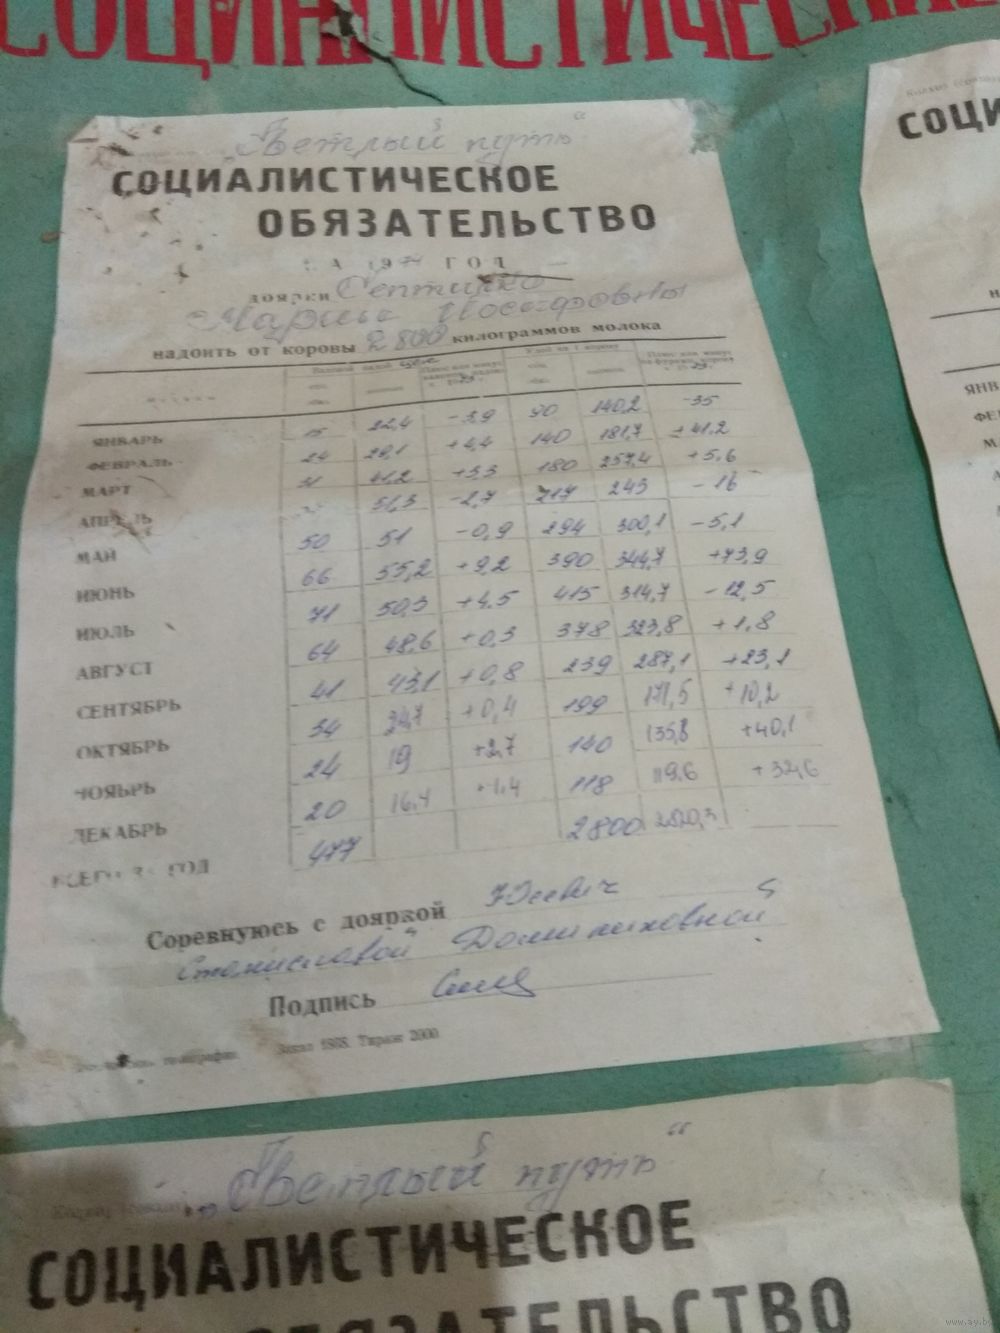 СОЦИАЛИСТИЧЕСКИЕ
„Светлый путь“
СОЦИАЛИСТИЧЕСКОЕ
ОБЯЗАТЕЛЬСТВО
НА 1974 ГОД
доярки
Марии Иосифовны
надоить от коровы 2800 килограммов молока
ЯНВАРЬ 15 22,4 -3,9 90 140,2 -35
ФЕВРАЛЬ 24 29,1 +4,4 140 181,7 +41,2
МАРТ 31 41,2 +3,3 180 257,4 +5,6
АПРЕЛЬ 51,3 -2,7 217 243 -16
МАЙ 50 51 -0,9 294 300,1 -5,1
ИЮНЬ 66 55,2 +9,2 390 344,7 +73,9
ИЮЛЬ 71 50,3 +4,5 415 314,7 -12,5
АВГУСТ 64 48,6 +0,3 378 323,8 +1,8
СЕНТЯБРЬ 41 43,1 +0,8 239 287,1 +23,1
ОКТЯБРЬ 34 24,7 +0,4 199 171,5 +10,2
НОЯБРЬ 24 19 +2,7 140 135,8 +40,1
ДЕКАБРЬ 20 16,4 +1,4 118 119,6 +32,6
ВСЕГО ЗА ГОД 477 2800 2820,3
Соревнуюсь с дояркой Юсевич
Станиславой Доминиковной
Подпись
типография Заказ 1868. Тираж 2000
„Светлый путь“
СОЦИАЛИСТИЧЕСКОЕ
ОБЯЗАТЕЛЬСТВО
СОЦИ
ЯНВ
ФЕ
М
А
www.ay.by